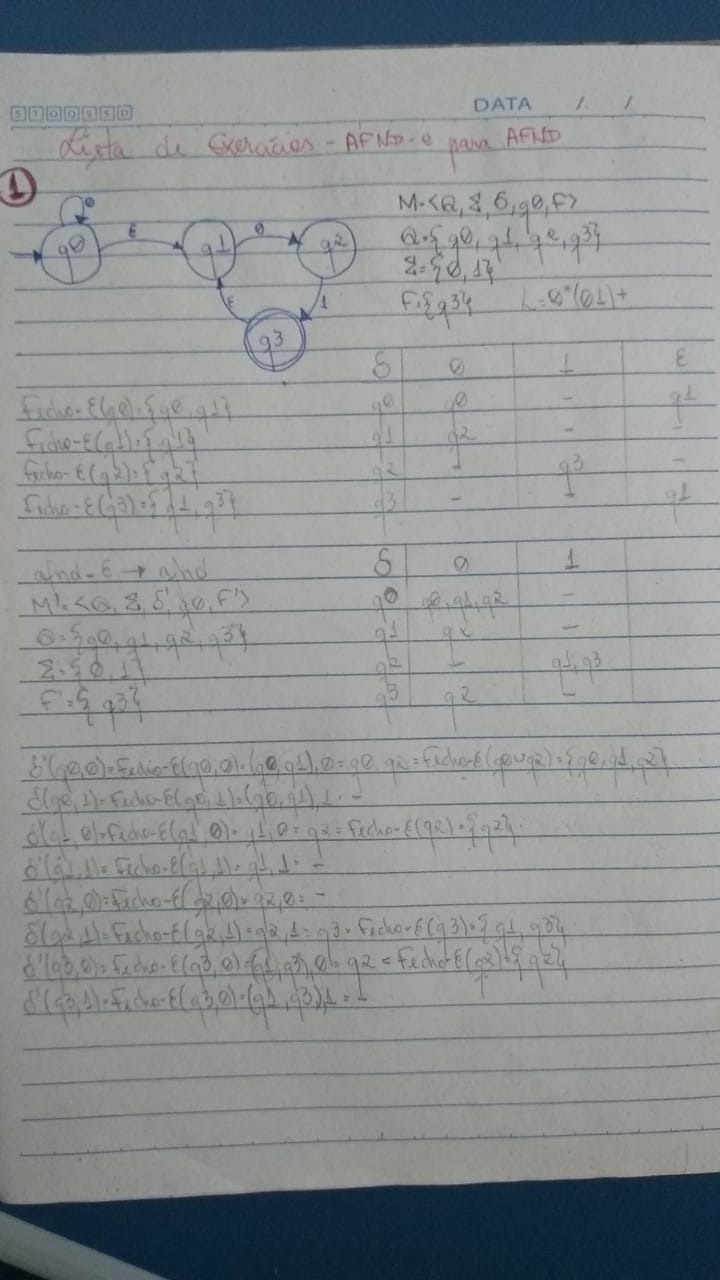 STQQSSD DATA / /
Lista de Exercícios - AFND-e para AFND
1
0
M=<Q, Σ, δ, q0, F>
q0 ε q1 0 q2
Q={q0, q1, q2, q3}
Σ={0, 1}
ε q3 1
F={q3} L=0*(01)+
δ 0 1 ε
Fecho-ε(q0)={q0, q1} q0 q0 - q1
Fecho-ε(q1)={q1} q1 q2 - -
Fecho-ε(q2)={q2} q2 - q3 -
Fecho-ε(q3)={q1, q3} q3 - - q1
afnd-ε → afnd δ 0 1
M'=<Q, Σ, δ', q0, F'> q0 q0, q1, q2 -
Q={q0, q1, q2, q3} q1 q2 -
Σ={0, 1} q2 - q1, q3
F'={q3} q3 q2 -
δ'(q0,0)=Fecho-ε(q0,0)=(q0,q1),0=q0,q2=Fecho-ε(q0∪q2)={q0, q1, q2}
δ'(q0,1)=Fecho-ε(q0,1)=(q0,q1),1=-
δ'(q1,0)=Fecho-ε(q1,0)=q1,0=q2=Fecho-ε(q2)={q2}
δ'(q1,1)=Fecho-ε(q1,1)=q1,1=-
δ'(q2,0)=Fecho-ε(q2,0)=q2,0=-
δ(q2,1)=Fecho-ε(q2,1)=q2,1=q3=Fecho-ε(q3)={q1, q3}
δ'(q3,0)=Fecho-ε(q3,0)=(q1,q3),0=q2=Fecho-ε(q2)={q2}
δ'(q3,1)=Fecho-ε(q3,0)=(q1,q3),1=-